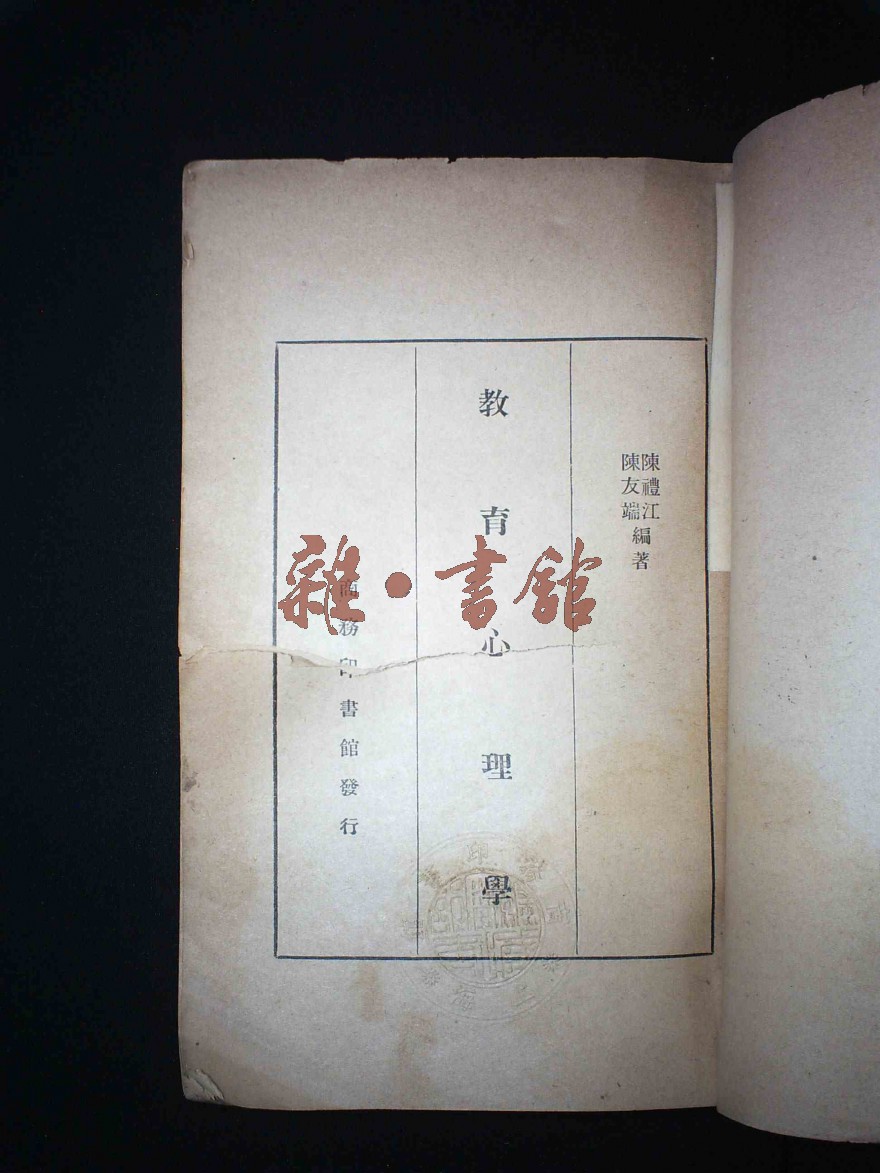 陳禮江
陳友端
編著
教育心理學
商務印書館發行
雜·書館